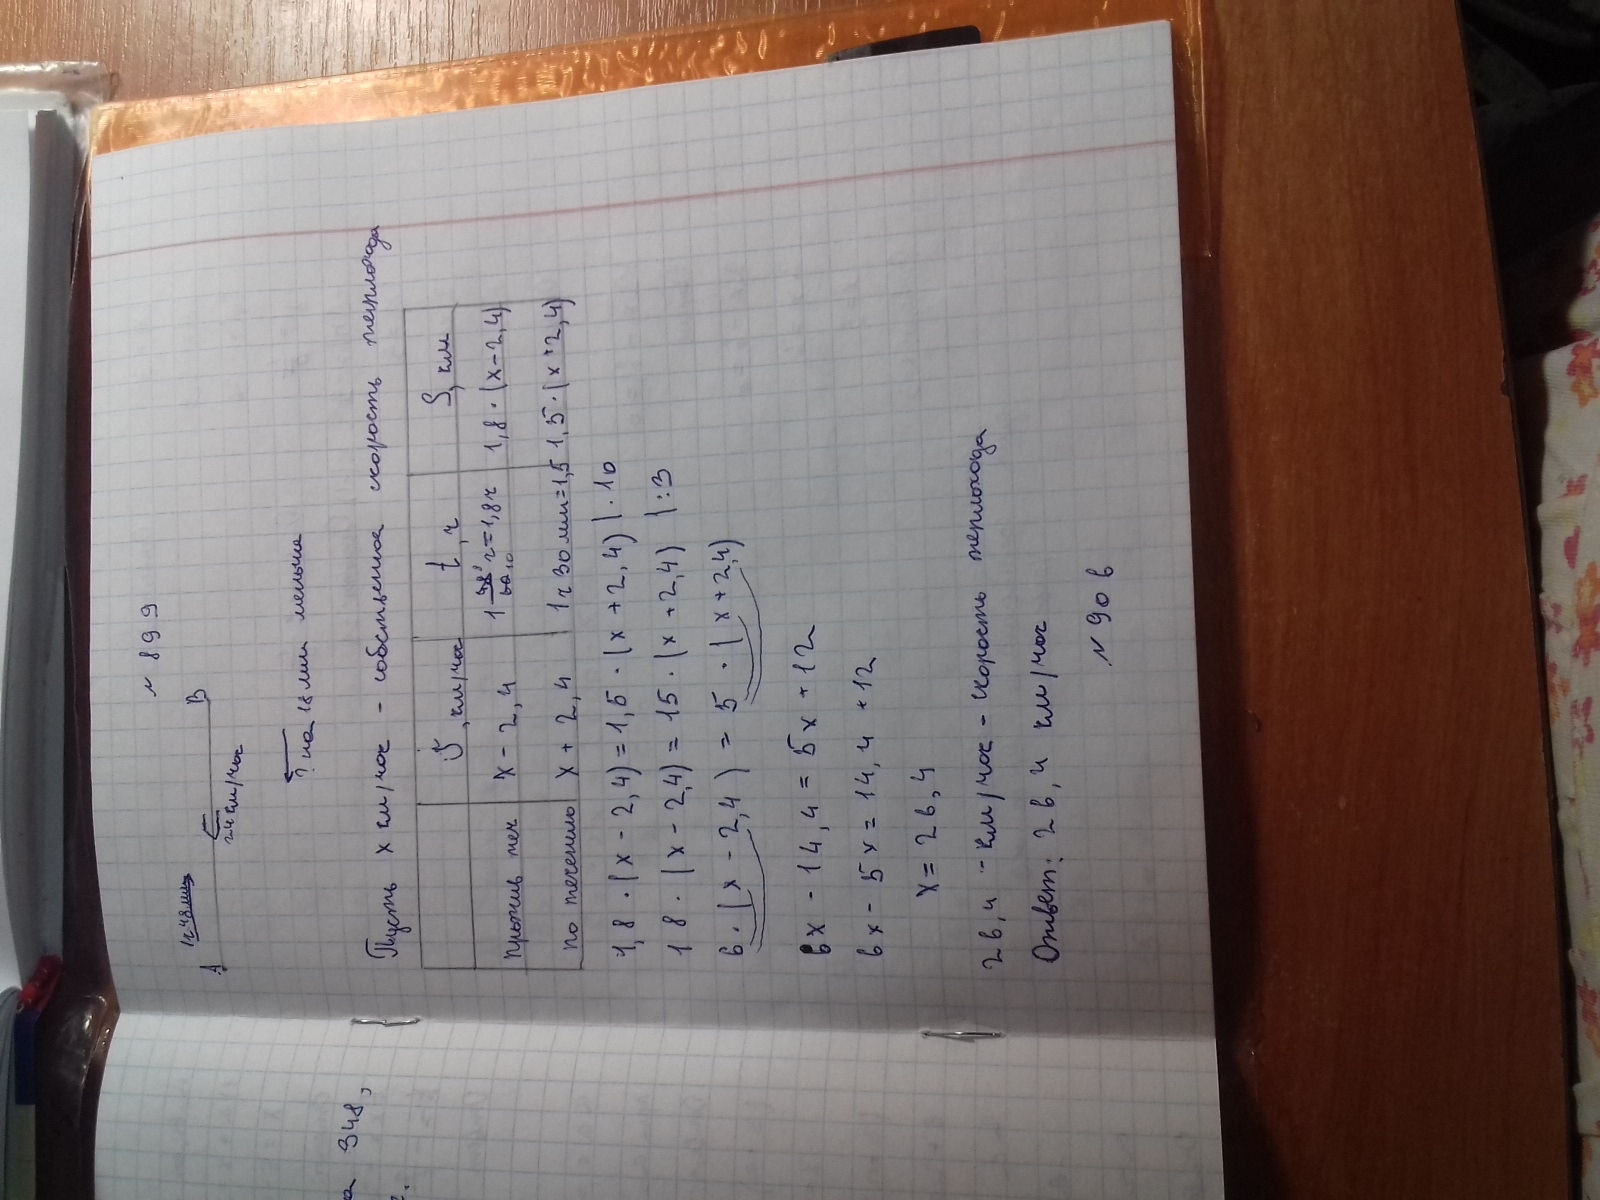 а 348,
№ 899
1ч 48мин
А В
2,4 км/час
? на 18 мин меньше
Пусть x км/час - собственная скорость теплохода
V, км/час t, ч S, км
против теч x - 2,4 1 48/60 ч = 1,8ч 1,8 · (x - 2,4)
по течению x + 2,4 1ч 30 мин = 1,5 1,5 · (x + 2,4)
1,8 · (x - 2,4) = 1,5 · (x + 2,4) | · 10
18 · (x - 2,4) = 15 · (x + 2,4) | : 3
6 · (x - 2,4) = 5 · (x + 2,4)
6x - 14,4 = 5x + 12
6x - 5x = 14,4 + 12
x = 26,4
26,4 - км/час - скорость теплохода
Ответ: 26,4 км/час
№ 906